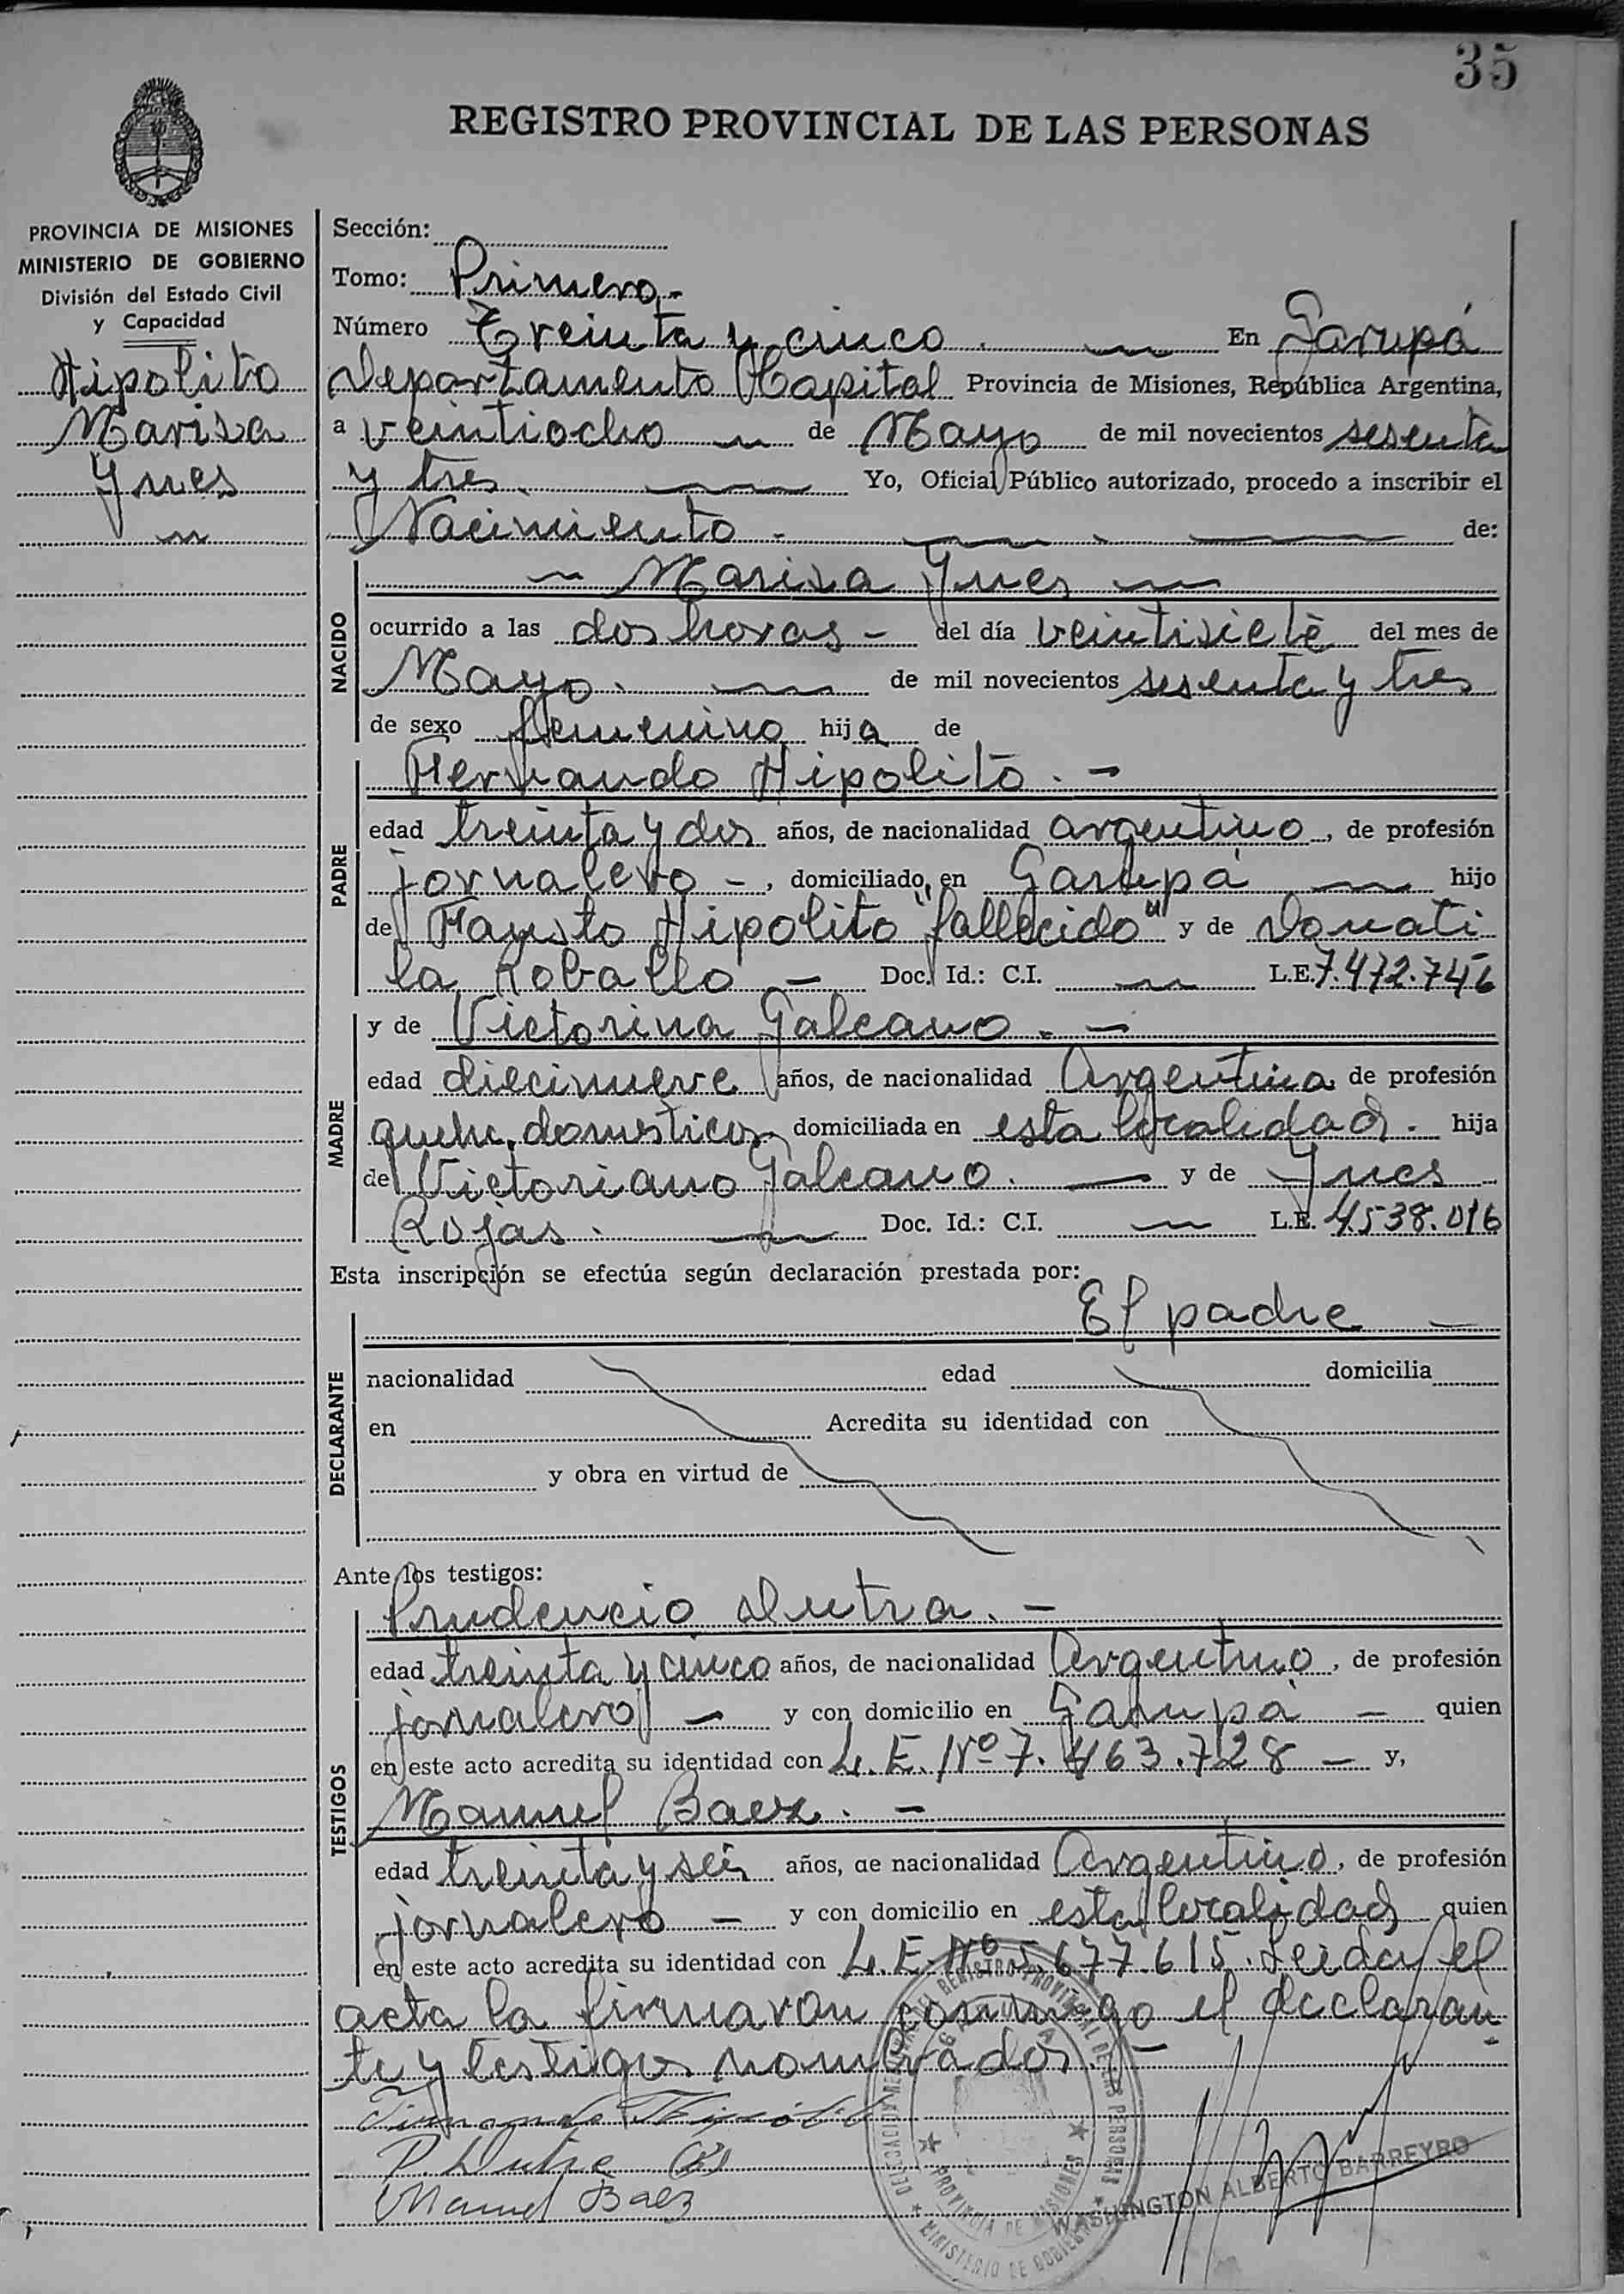 35
REGISTRO PROVINCIAL DE LAS PERSONAS
PROVINCIA DE MISIONES
MINISTERIO DE GOBIERNO
División del Estado Civil
y Capacidad
Hipolito
Marisa
Ynes
Sección:
Tomo: Primero.-
Número Treinta y cinco. En Garupá
Departamento Capital Provincia de Misiones, República Argentina,
a veintiocho de Mayo de mil novecientos sesenta
y tres. Yo, Oficial Público autorizado, procedo a inscribir el
Nacimiento. de:
NACIDO
Marisa Ynes
ocurrido a las dos horas - del día veintisiete del mes de
Mayo. de mil novecientos sesenta y tres
de sexo femenino hija de
PADRE
Hernando Hipolito. -
edad treinta y dos años, de nacionalidad argentino, de profesión
jornalero -, domiciliado en Garupá hijo
de Fausto Hipolito "fallecido" y de Donati
la Roballo - Doc. Id.: C.I. L.E. 7.472.746
MADRE
y de Victorina Galeano. -
edad diecinueve años, de nacionalidad Argentina de profesión
quehc. domesticos domiciliada en esta localidad. hija
de Victoriano Galeano. y de Ynes
Rojas. Doc. Id.: C.I. L.E. 4.538.016
Esta inscripción se efectúa según declaración prestada por:
DECLARANTE
El padre -
nacionalidad edad domicilia
en Acredita su identidad con
y obra en virtud de
Ante los testigos:
TESTIGOS
Prudencio Dutra. -
edad treinta y cinco años, de nacionalidad Argentino, de profesión
jornalero - y con domicilio en Garupá - quien
en este acto acredita su identidad con L.E. Nº 7.463.728 - y,
Manuel Baez. -
edad treinta y seis años, de nacionalidad Argentino, de profesión
jornalero - y con domicilio en esta localidad quien
en este acto acredita su identidad con L.E. Nº 5.677.615. Leida el
acta la firmaron conmigo el declaran
te y testigos nombrados. -
P. Dutra
Manuel Baez
WASHINGTON ALBERTO BARREYRO
DELEGACION DEL REGISTRO PROVINCIAL DE LAS PERSONAS
GARUPA
PROVINCIA DE MISIONES
MINISTERIO DE GOBIERNO